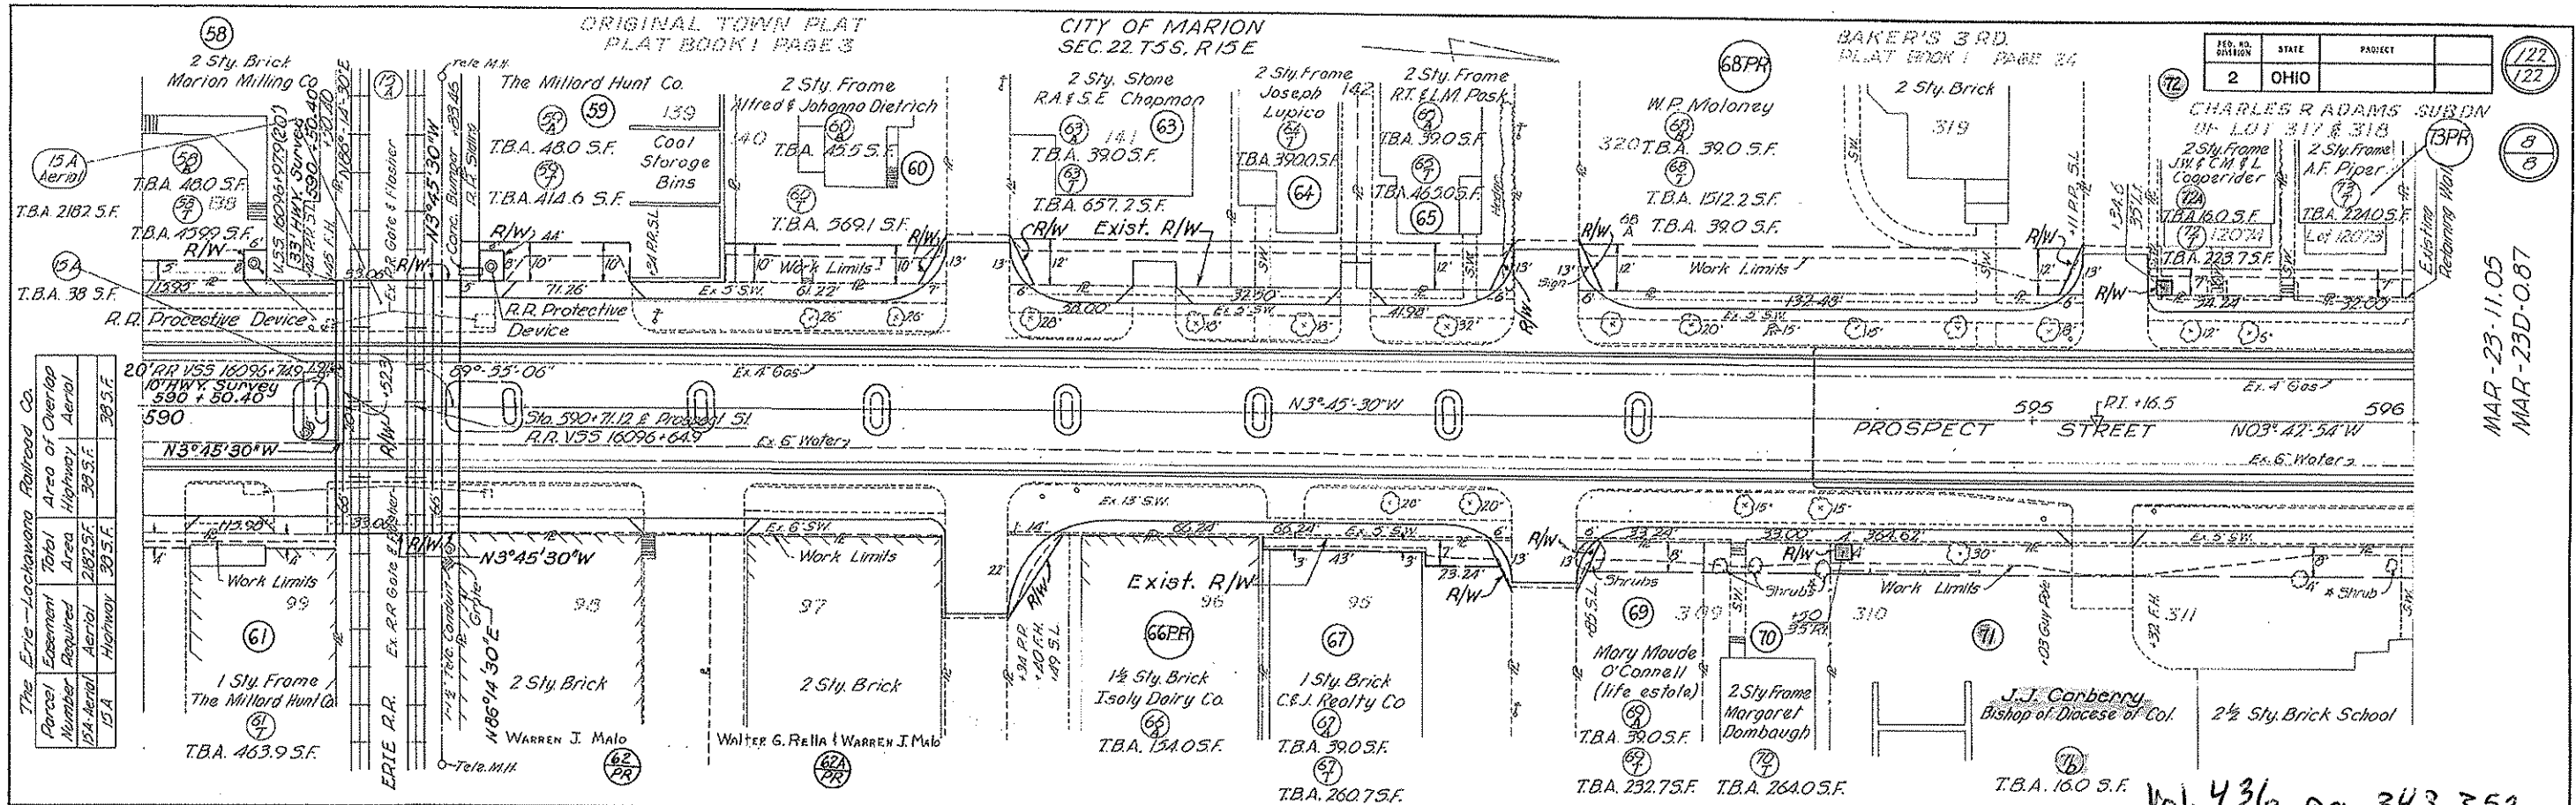 ORIGINAL TOWN PLAT
PLAT BOOK 1 PAGE 3
CITY OF MARION
SEC. 22 T5S, R15E
BAKER'S 3 RD.
PLAT BOOK 1 PAGE 24
FED. RD. DIVISION STATE PROJECT
2 OHIO
122
122
8
8
MAR-23-11.05
MAR-23D-0.87
58
2 Sty. Brick
Marion Milling Co.
58
A
T.B.A. 48.0 S.F.
58
T
138
T.B.A. 459.9 S.F.
R/W
15A
Aerial
T.B.A. 2182 S.F.
15A
T.B.A. 38 S.F.
R.R. Protective Device
V.S.S. 16096+97.9 (20')
33' HWY. Survey
590+50.40
N86°-14'-30"E
Ex. R.R. Gate & Flasher
N3°45'30"W
Conc. Bumper +83.45
R.R. Signs
Tele M.H.
The Millard Hunt Co.
59
A
59
139
T.B.A. 48.0 S.F.
59
T
T.B.A. 414.6 S.F.
Coal
Storage
Bins
R/W
71.26
R.R. Protective
Device
2 Sty. Frame
Alfred & Johanna Dietrich
140
60
A
T.B.A. 45.5 S.F.
60
60
T
T.B.A. 569.1 S.F.
R/W
Work Limits
Ex 5' S.W.
61.22'
2 Sty. Stone
R.A. & S.E. Chapman
63
A
141
63
T.B.A. 39.0 S.F.
63
T
T.B.A. 657.2 S.F.
R/W
Exist. R/W
2 Sty. Frame
Joseph
Lupico
142
64
T
T.B.A. 390.0 S.F.
64
2 Sty. Frame
R.T. & L.M. Pask
65
A
T.B.A. 39.0 S.F.
65
T
T.B.A. 465.0 S.F.
65
Hedge
R/W
Sign
68PR
W.P. Maloney
68
A
320
T.B.A. 39.0 S.F.
68
T
T.B.A. 1512.2 S.F.
68
A
T.B.A. 39.0 S.F.
R/W
Work Limits
132.48'
2 Sty. Brick
319
+11 P.P., S.L.
R/W
72
CHARLES R ADAMS SUBDN
OF LOT 317 & 318
73PR
2 Sty. Frame
J.W. & C.M. & L.
Cooperider
72A
T.B.A. 16.0 S.F.
72
T
12074
T.B.A. 223.7 S.F.
2 Sty. Frame
A.F. Piper
73
T
T.B.A. 224.0 S.F.
Lot 12073
Existing
Retaining Wall
R/W
34.24'
32.00'
20' RR VSS 16096+74.9
10' HWY. Survey
590+50.40
590
N3°45'30"W
89°-55'-06"
Sta. 590+71.12 & Prospect St.
R.R. VSS 16096+64.9
Ex. 4" Gas
Ex 6" Water
N3°-45'-30"W
PROSPECT STREET
595
P.I. +16.5
596
N03°-42'-54"W
Ex. 4" Gas
Ex. 6" Water
The Erie-Lackawana Railroad Co.
Parcel Number Easement Required Total Area Area of Overlap
Highway Aerial
15A-Aerial Aerial 2182 S.F. 38 S.F.
15A Highway 38 S.F. 38 S.F.
115.98'
33.06'
Work Limits
99
61
1 Sty. Frame
The Millard Hunt Co.
61
T
T.B.A. 463.9 S.F.
ERIE R.R.
Ex. R.R. Gate & Flasher
R/W
N3°45'30"W
Tele. Conduit
Grate
N86°14'30"E
Tele. M.H.
98
2 Sty. Brick
WARREN J. Malo
62
PR
Ex. 6' S.W.
Work Limits
97
2 Sty. Brick
Walter G. Rella & WARREN J. Malo
62A
PR
Ex. 13' S.W.
66.24'
R/W
+34 P.P.
+40 F.H.
+49 S.L.
Exist. R/W
96
66PR
1½ Sty. Brick
Isaly Dairy Co.
66
A
T.B.A. 154.0 S.F.
66.24'
Ex. 5' S.W.
43'
23.24'
R/W
95
67
1 Sty. Brick
C.&J. Realty Co
67
A
T.B.A. 39.0 S.F.
67
T
T.B.A. 260.7 S.F.
R/W
+85 S.L.
33.24'
Shrubs
69
309
Mary Maude
O'Connell
(life estate)
69
A
T.B.A. 39.0 S.F.
69
T
T.B.A. 232.7 S.F.
33.00'
R/W
Shrubs
70
2 Sty Frame
Margaret
Dombaugh
70
T
T.B.A. 264.0 S.F.
+50
35' Rt.
364.62'
310
Work Limits
71
+03 Guy Pole
+32 F.H.
J.J. Carberry
Bishop of Diocese of Col.
T.B.A. 16.0 S.F.
Ex. 5' S.W.
Shrub
311
S.W.
2½ Sty. Brick School
Vol. 436 pg. 343,352